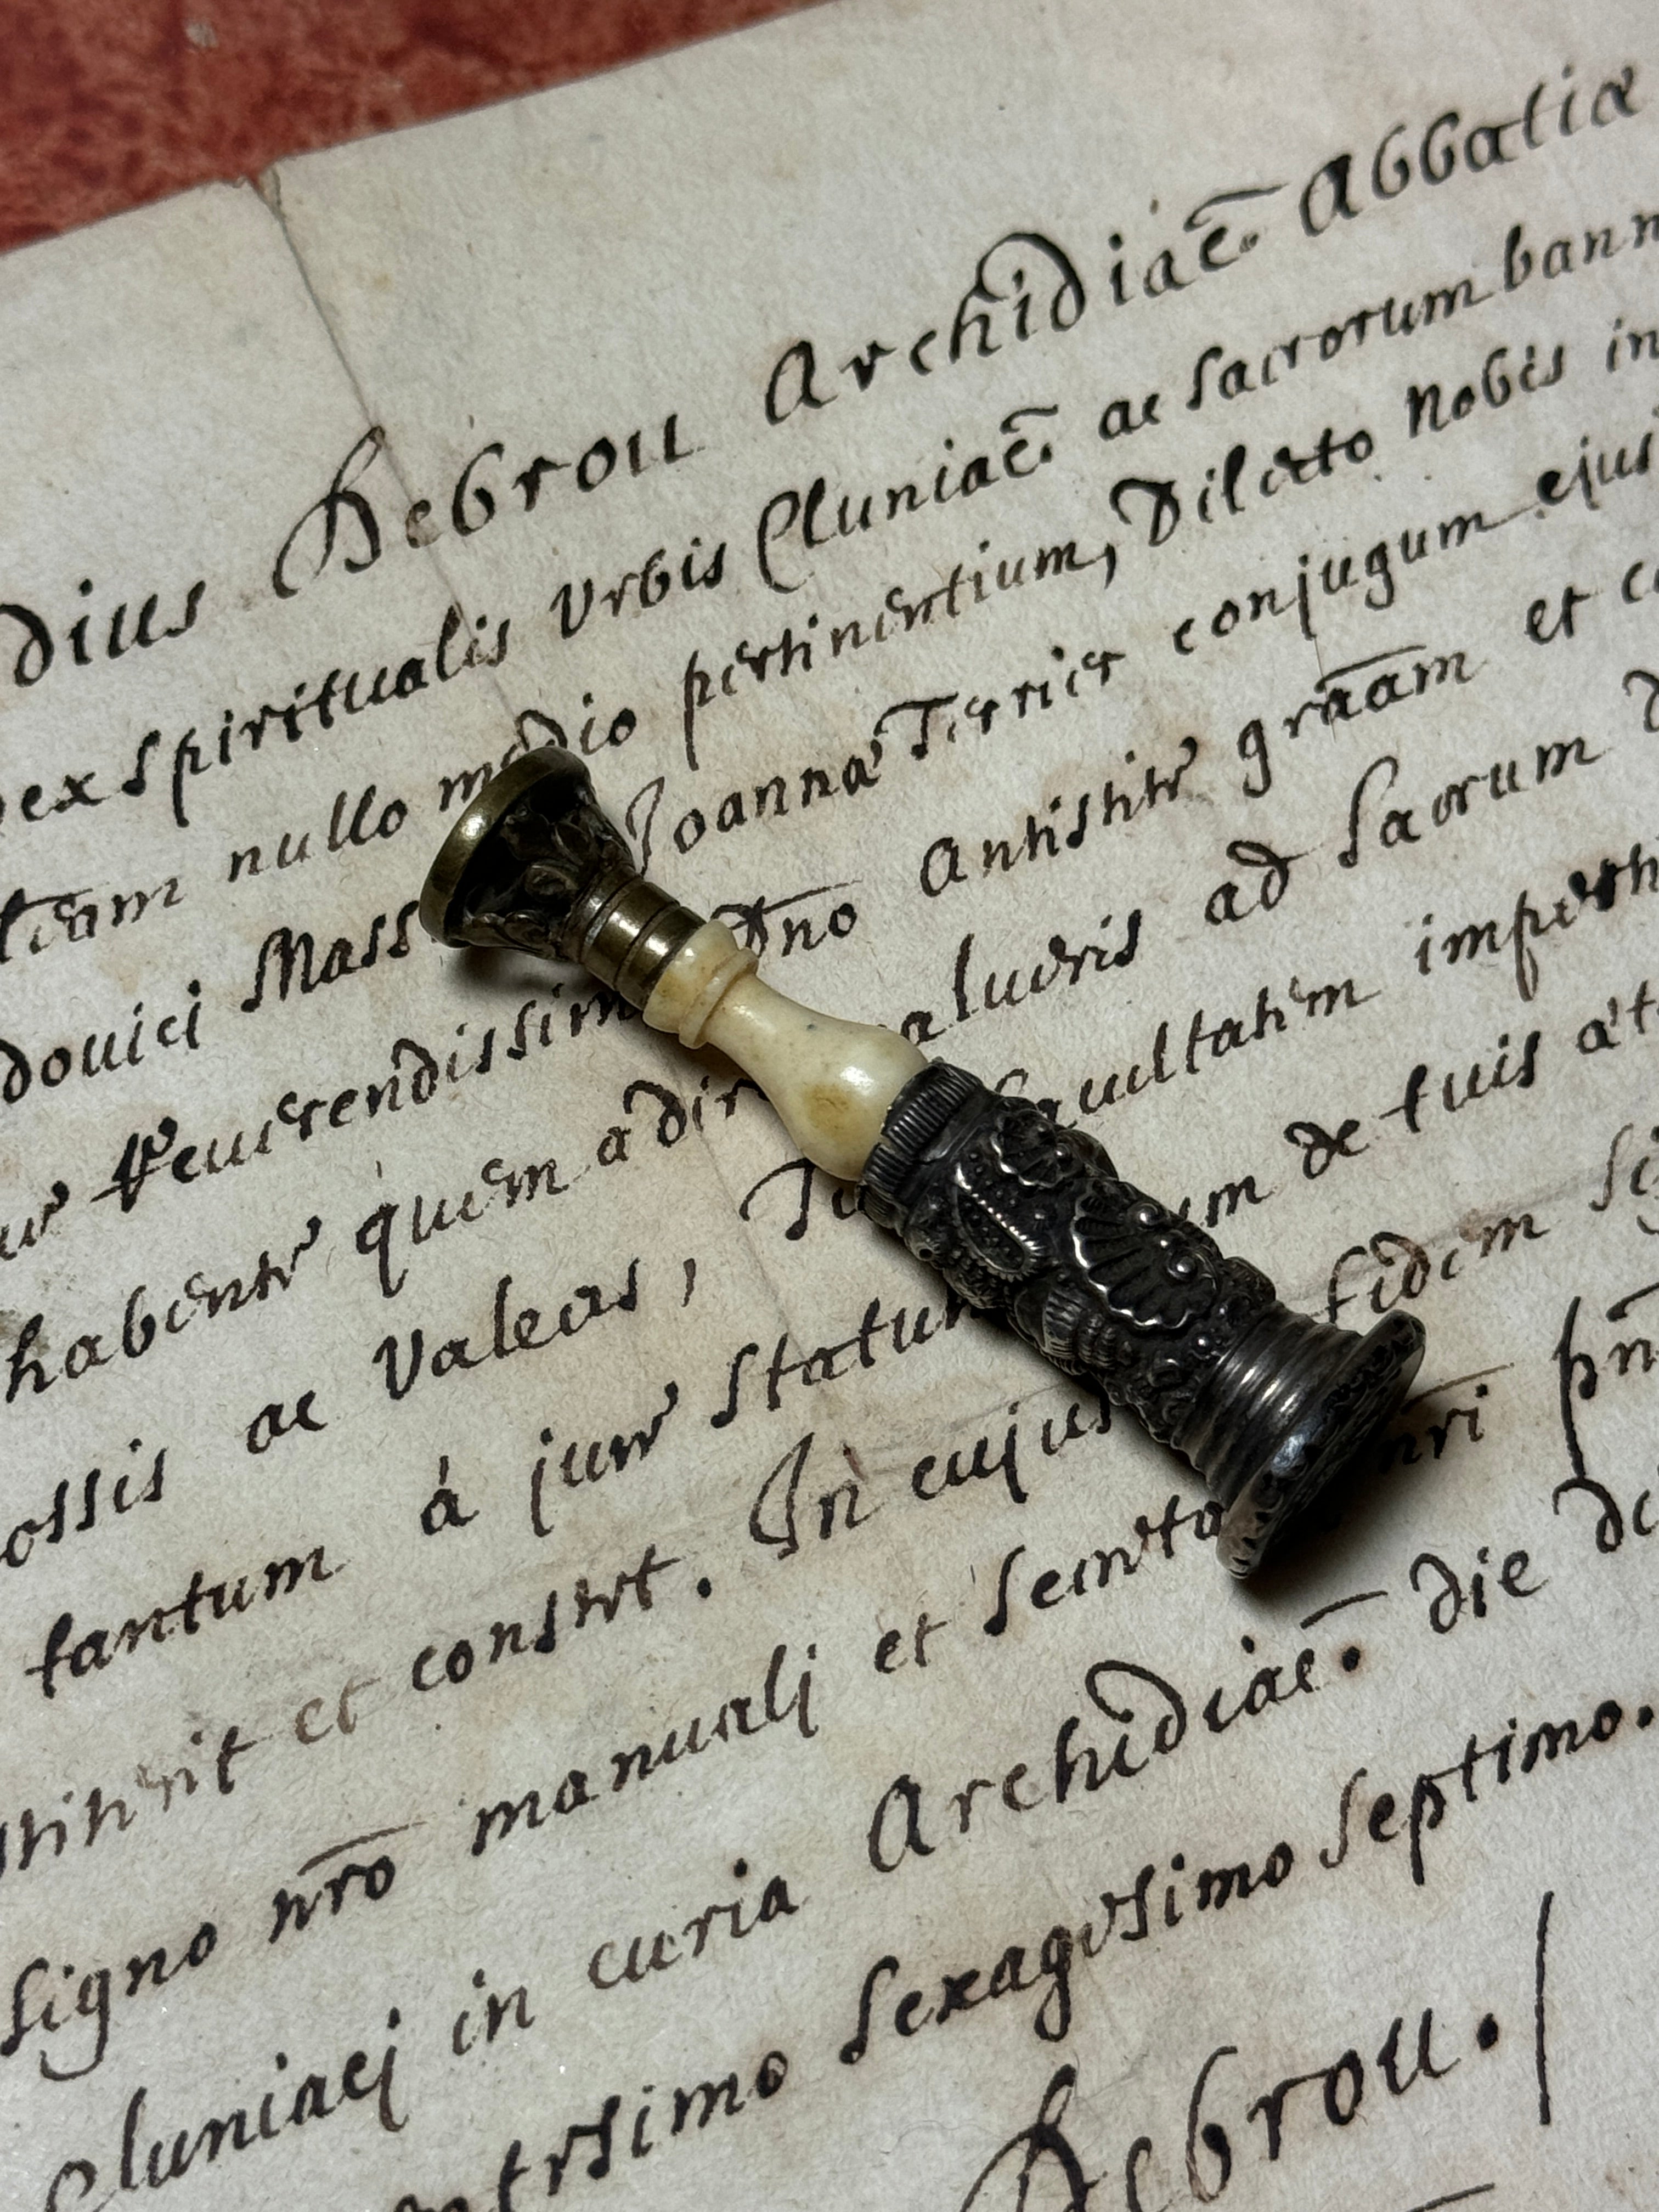 dius Hebrou Archidiac̄. Abbatiæ
ex spiritualis Vrbis Cluniac̄. ac sacrorum bann
tiam nullo medio pertinentium, Dilecto Nobis in
douici Mass Joannæ Terrier conjugum ejus
Reuerendissim Dno Antistite grāam et
habente quem adir alueris ad Sacrum
ossis ac Valeas, Tu facultatem imperti
tantum à jure Statum um de tuis æt
stiterit et constet. In cujus fidem Si
signo nr̄o manuali et Secreta nr̄i
Cluniaci in curia Archidiac̄. die
sexagesimo septimo.
Hebrou.